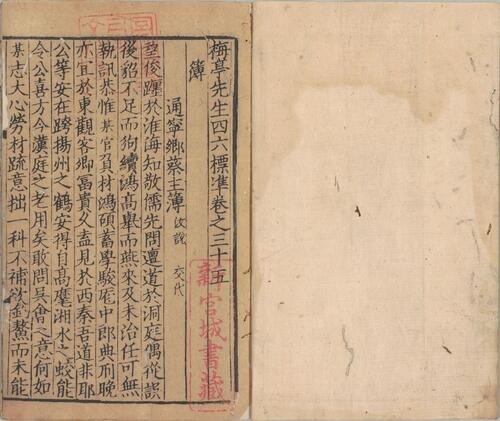 梅亭先生四六標準卷之三十五
簿
通寧鄉蔡主簿 汝説 交代
望俊躔於淮海知敬儒先問邅道於洞庭偶從誤
後貂不足而狗續鴻高舉而燕來及未治任可無
執訊恭惟某官負材鴻碩蓄學駿厖中郎典刑晚
亦宜於東觀客卿富貴久盍見於西秦吾道非耶
公等安在跨揚州之鶴安得自高麾湘水之蛟能
令公喜方今漢庭之老用矣敢問具會之意何如
某志大心勞材疏意拙一科不補欲釣鰲而未能
新宮城書藏